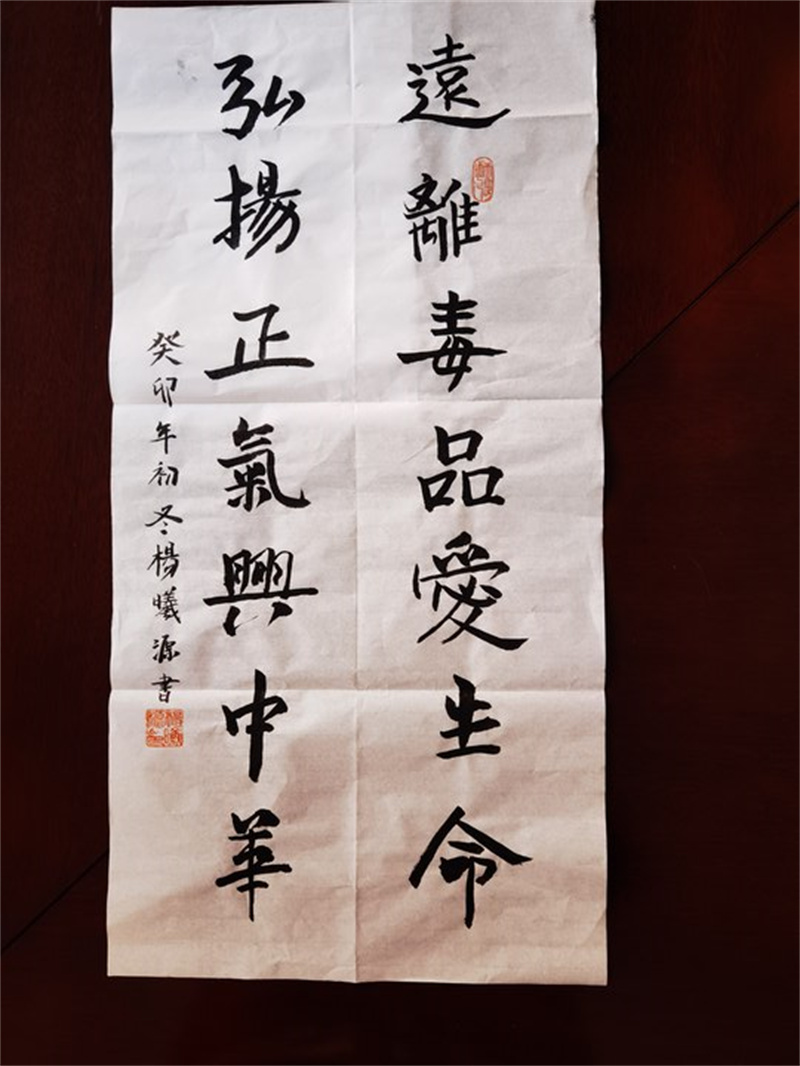 遠離毒品愛生命
弘揚正氣興中華
癸卯年初冬楊曦源書